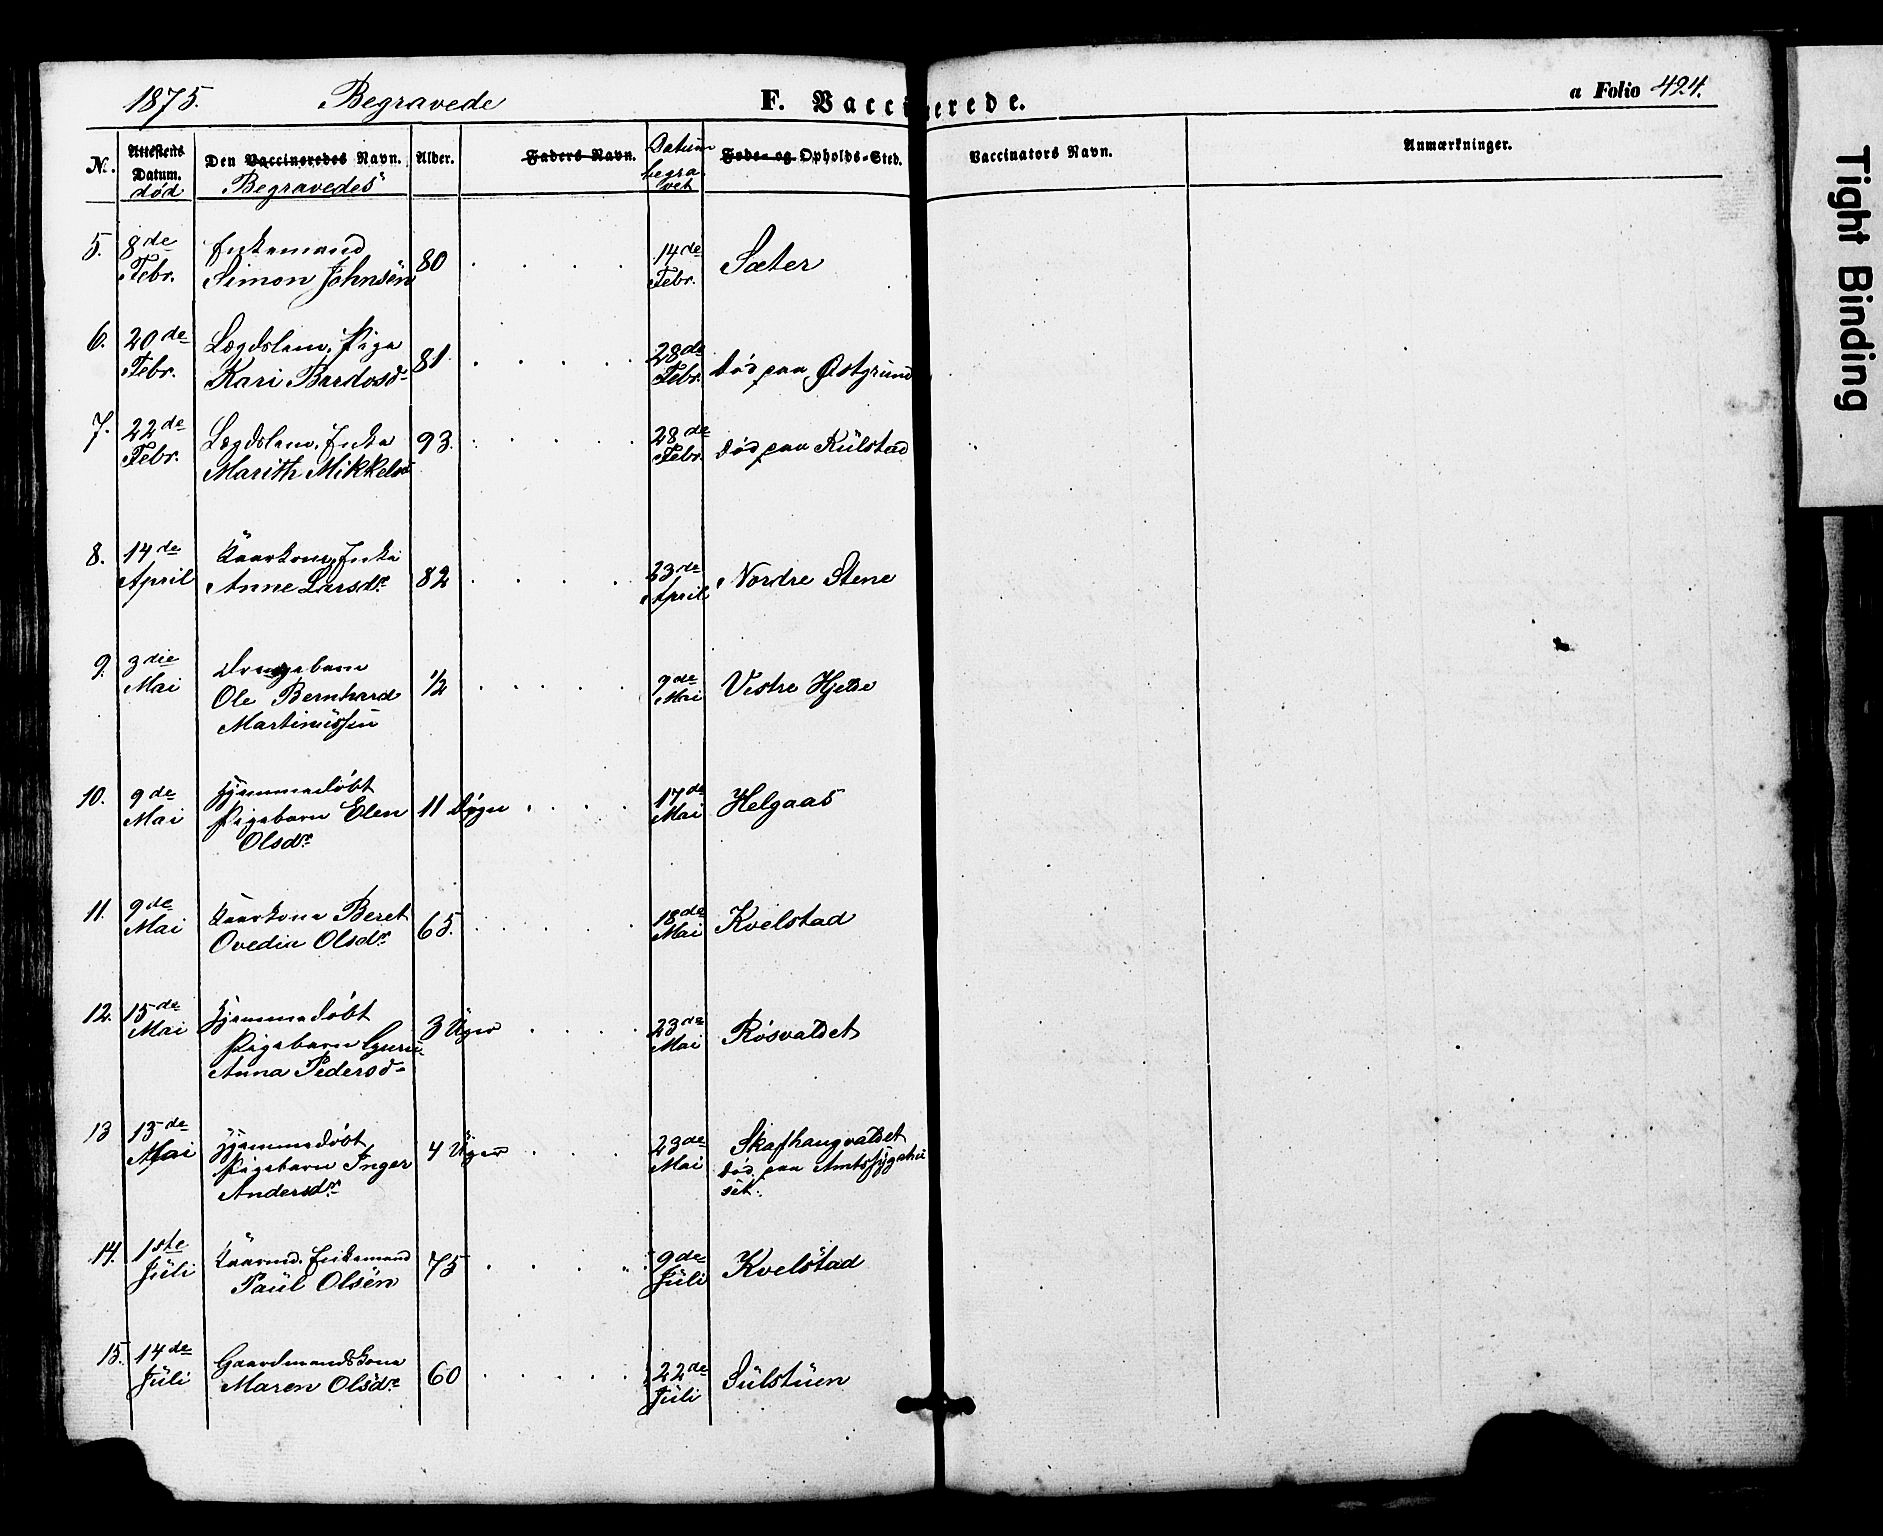 1875. Begravede F. Vaccinerede. a Folio 424.
N. Attestens Datum. død Den Vaccineredes Navn. Begravedes Alder. Faders Navn. Datum begravet Føde- og Opholds-Sted. Vaccinators Navn. Anmærkninger.
5. 8de Febr. Enkemand Simon Johnsen 80 14de Febr. Sæter
6. 20de Febr. Lægdslem, Pige Kari Bardosd- 81 28de Febr. død paa Østgrund
7. 22de Febr. Lægdslem, Enke Marith Mikkelsd 93. 28de Febr. død paa Kulstad
8. 14de April Kaarkone, Enke Anne Larsdr. 82 23de April Nordre Stene
9. 3die Mai Drengebarn Ole Bernhard Martinussen 1/2 9de Mai Vestre Hjelde
10. 9de Mai Hjemmedøbt Pigebarn Elen Olsdr. 11 Døgn 17de Mai Helgaas
11. 9de Mai Kaarkone Beret Ovedia Olsdr. 65. 18de Mai Kvelstad
12. 15de Mai Hjemmedøbt Pigebarn Guru Anna Pedersd- 3 Uger 23de Mai Røsvaldet
13 15de Mai Hjemmedøbt Pigebarn Inger Andersdr. 4 Uger 23de Mai Skafhaugvaldet død paa Amtssygehuset.
14. 1ste Juli Kaarmd. Enkemand Paul Olsen 75 9de Juli Kvelstad
15. 14de Juli Gaardmandskone Maren Olsdr. 60 22de Juli Sulstuen
Tight Binding